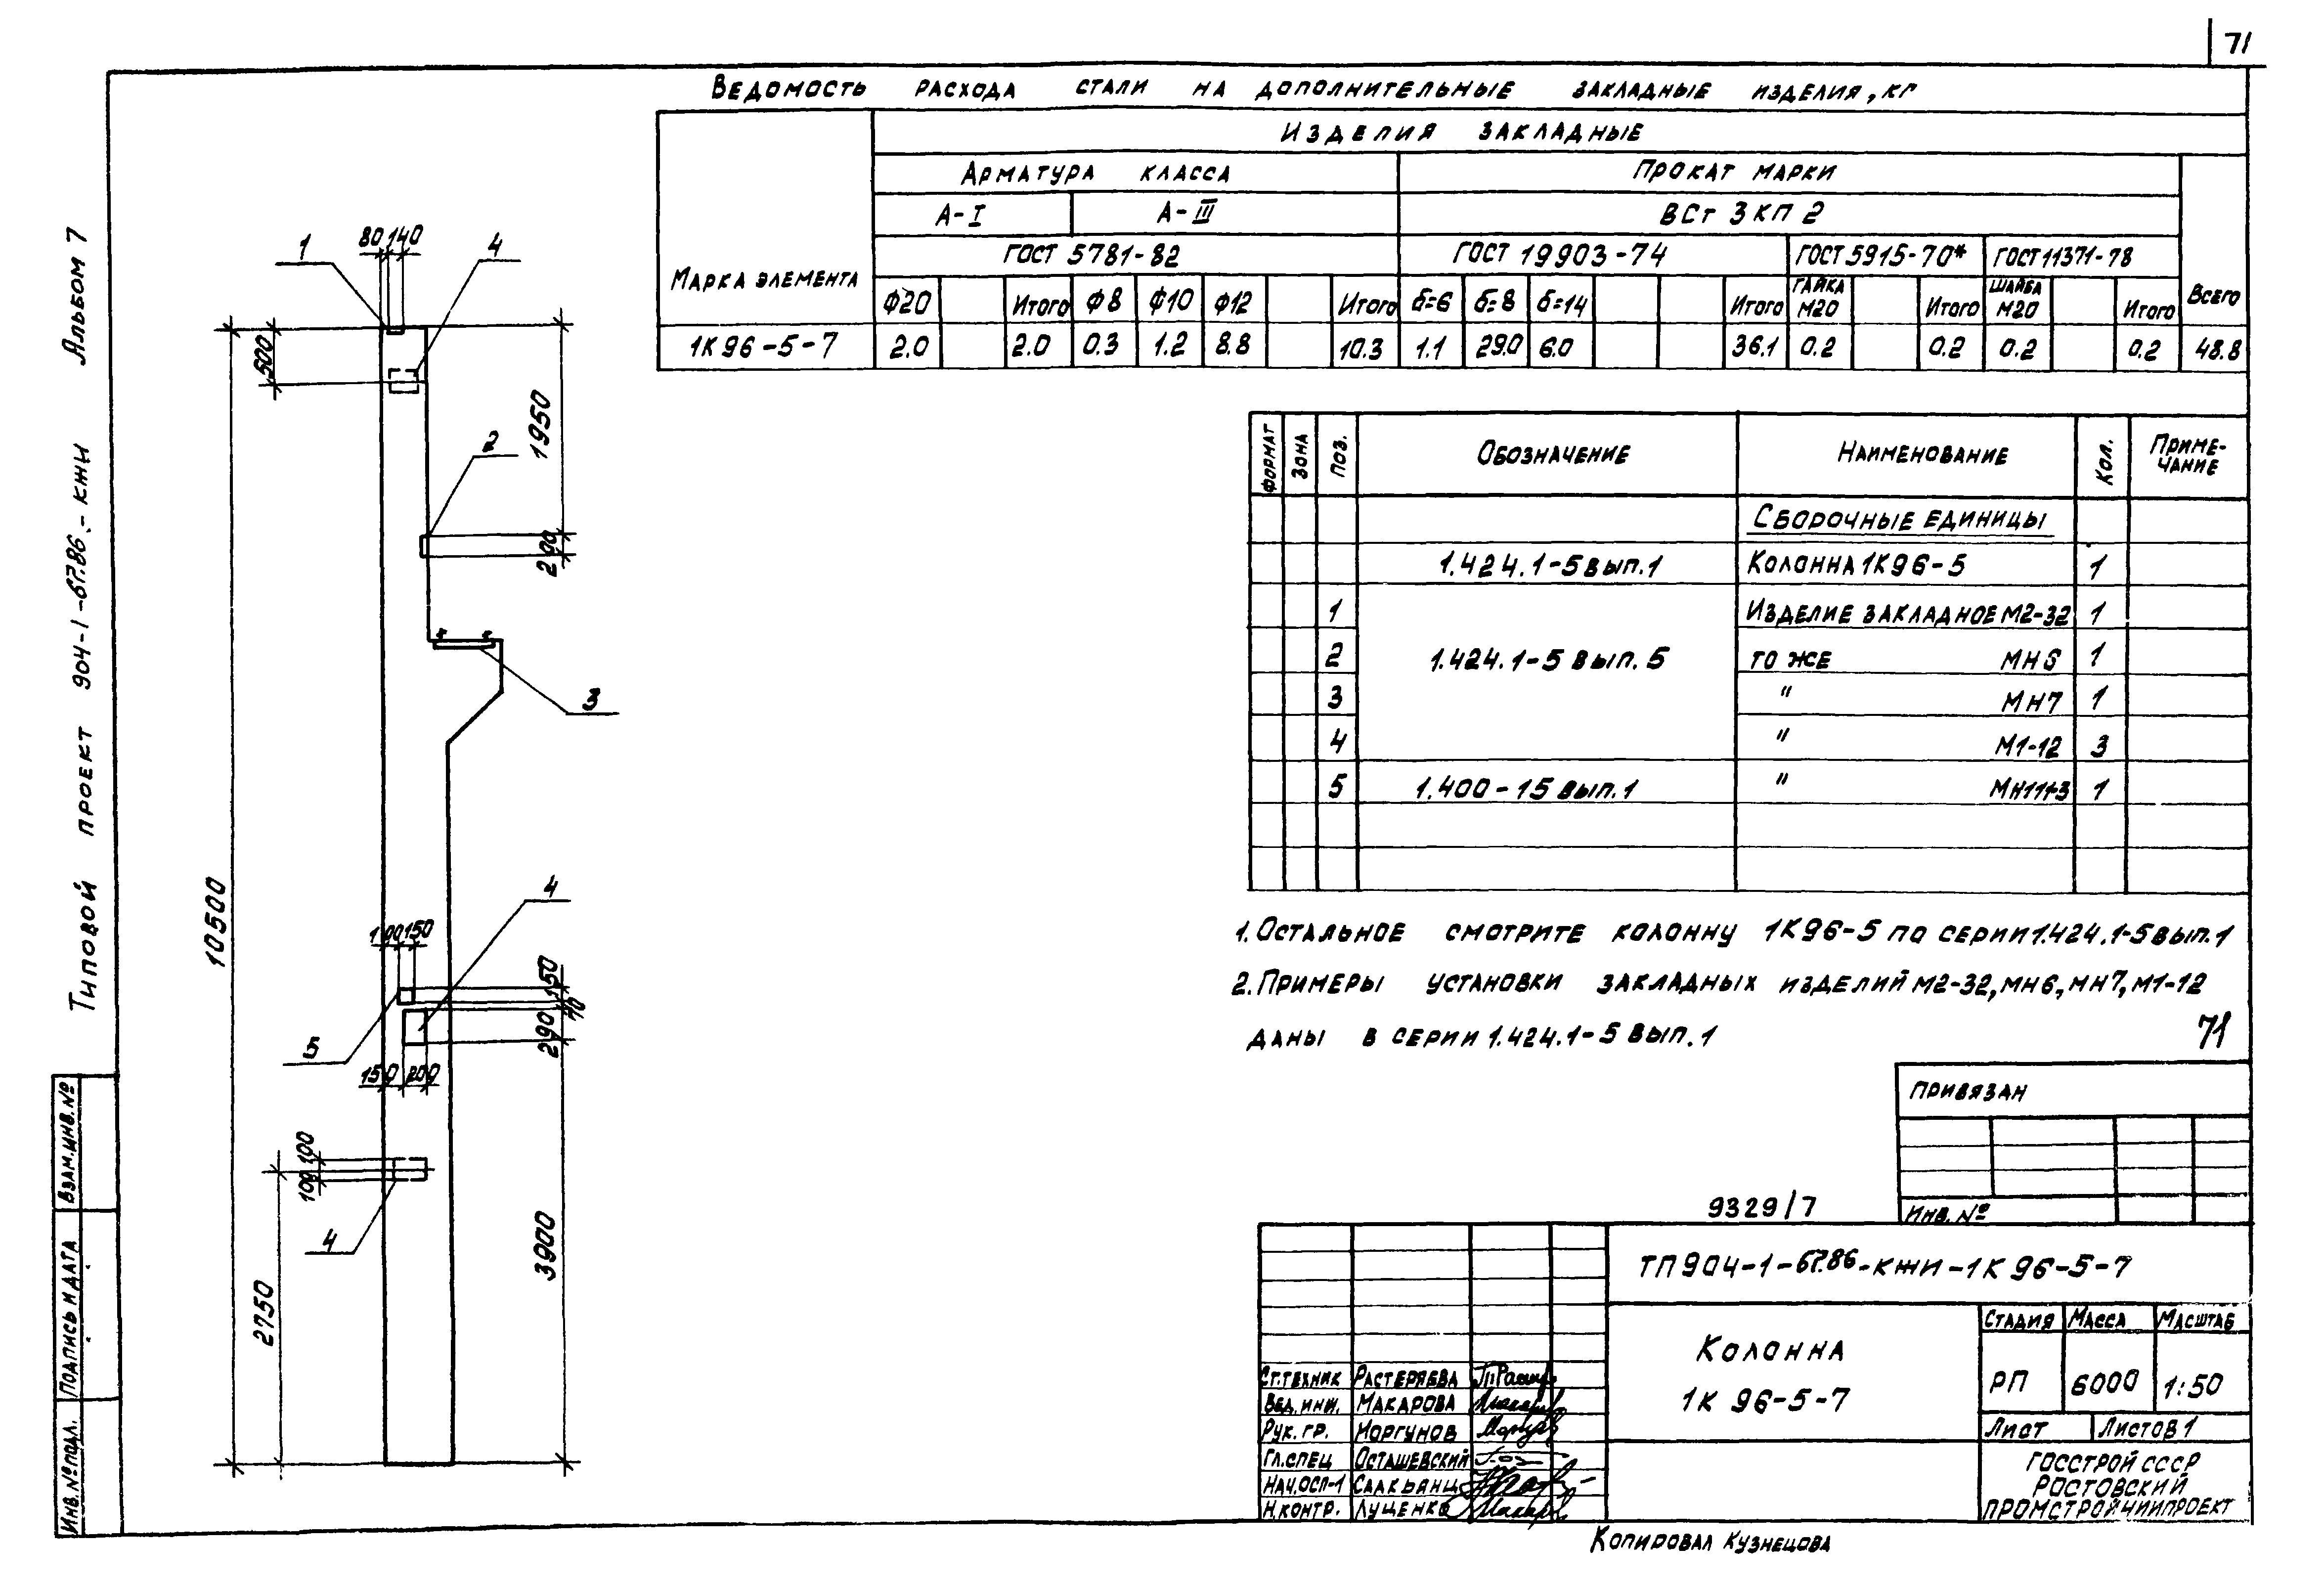 71
Альбом 7
Типовой проект 904-1-67.86.-КЖИ
Ведомость расхода стали на дополнительные закладные изделия, кг
Марка элемента
Изделия закладные
Арматура класса
Прокат марки
Всего
А-I
А-III
ВСт 3 кп 2
ГОСТ 5781-82
ГОСТ 19903-74
ГОСТ 5915-70*
ГОСТ 11371-78
Ф20 Итого Ф8 Ф10 Ф12 Итого б=6 б=8 б=14 Итого Гайка М20 Итого Шайба М20 Итого
1К96-5-7 2.0 2.0 0.3 1.2 8.8 10.3 1.1 29.0 6.0 36.1 0.2 0.2 0.2 0.2 48.8
1
80 140
4
500
1950
2
290
3
10500
4
100 150
150
70
290
5
150 200
100
100
4
2750
3900
Формат Зона Поз. Обозначение Наименование Кол. Приме-
чание
Сборочные единицы
1.424.1-5 вып.1 Колонна 1К96-5 1
1 Изделие закладное М2-32 1
2 1.424.1-5 вып. 5 то же МН6 1
3 " МН7 1
4 " М1-12 3
5 1.400-15 вып.1 " МН11-3 1
1. Остальное смотрите колонну 1К96-5 по серии 1.424.1-5 вып.1
2. Примеры установки закладных изделий М2-32, МН6, МН7, М1-12
даны в серии 1.424.1-5 вып.1
71
Привязан
Инв. №
9329/7
ТП904-1-67.86-КЖИ-1К96-5-7
Колонна
1К 96-5-7
Стадия Масса Масштаб
РП 6000 1:50
Лист Листов 1
Госстрой СССР
Ростовский
Промстройниипроект
Ст.техник Растеряева
Вед.инж. Макарова
Рук.гр. Моргунов
Гл.спец Осташевский
Нач.ОСП-1 Саакьянц
Н.контр. Луценко
Взам.инв.№
Подпись и дата
Инв.№подл.
Копировал Кузнецова